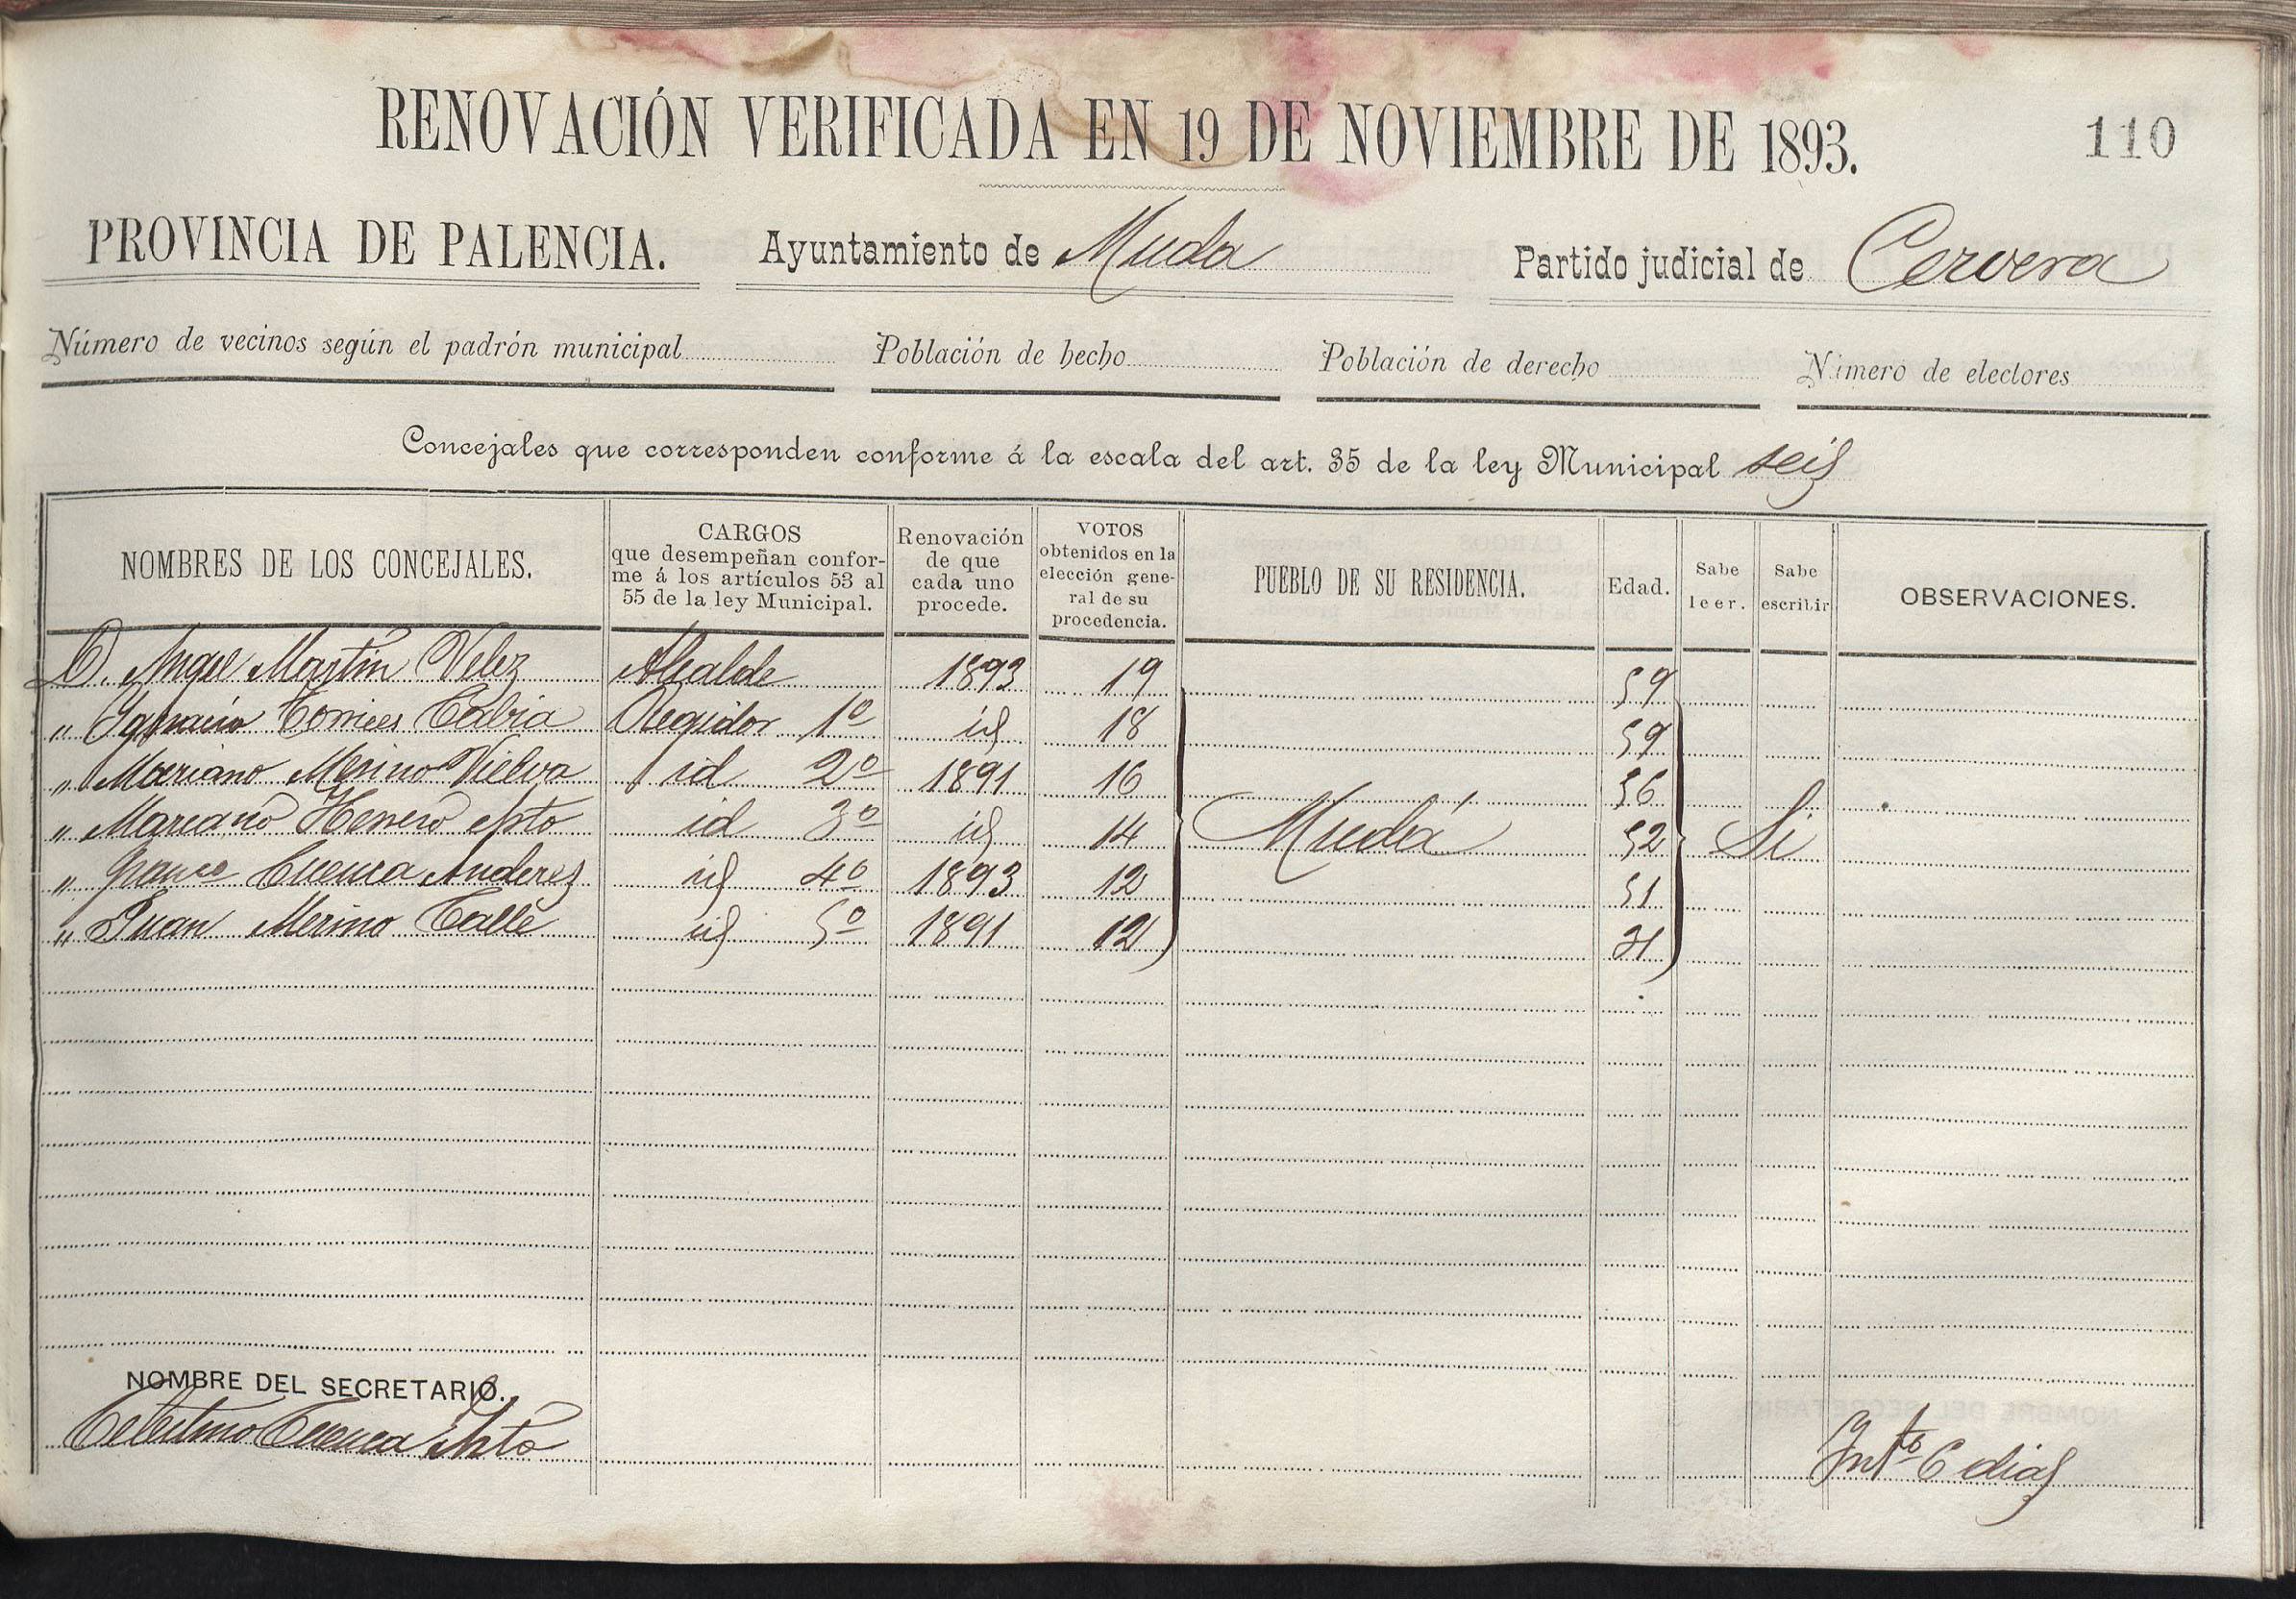 RENOVACIÓN VERIFICADA EN 19 DE NOVIEMBRE DE 1893.
110
PROVINCIA DE PALENCIA. Ayuntamiento de Muda Partido judicial de Cervera
Número de vecinos según el padrón municipal Población de hecho Población de derecho Número de electores
Concejales que corresponden conforme á la escala del art. 35 de la ley Municipal seis
NOMBRES DE LOS CONCEJALES.
CARGOS
que desempeñan confor-
me á los artículos 53 al
55 de la ley Municipal.
Renovación
de que
cada uno
procede.
VOTOS
obtenidos en la
elección gene-
ral de su
procedencia.
PUEBLO DE SU RESIDENCIA.
Edad.
Sabe
leer.
Sabe
escribir
OBSERVACIONES.
D. Angel Martin Velez Alcalde 1893 19 59
" Ignacio Torices Cabia Regidor 1º id 18 59
" Mariano Merino Vielva id 2º 1891 16 56
" Mariano Herrero id 3º id 14 Mudá 52 Si
" Cuenca Anderez id 4º 1893 12 51
" Juan Merino Calle id 5º 1891 12 31
NOMBRE DEL SECRETARIO.
Celestino Cuenca
Int.º 6 dias